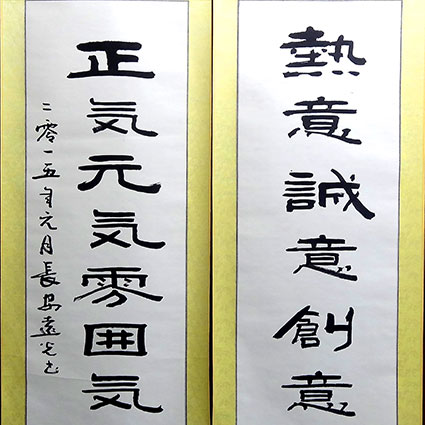 熱意誠意創意
正気元気雰囲気
二零一五年元月長安遠光书